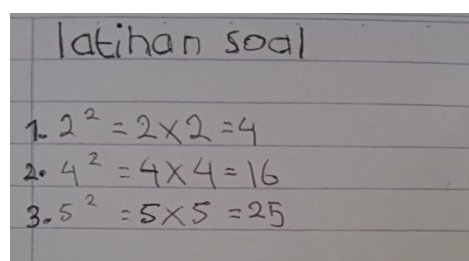 latihan soal
1. 2² = 2×2 = 4
2. 4² = 4×4 = 16
3. 5² = 5×5 = 25